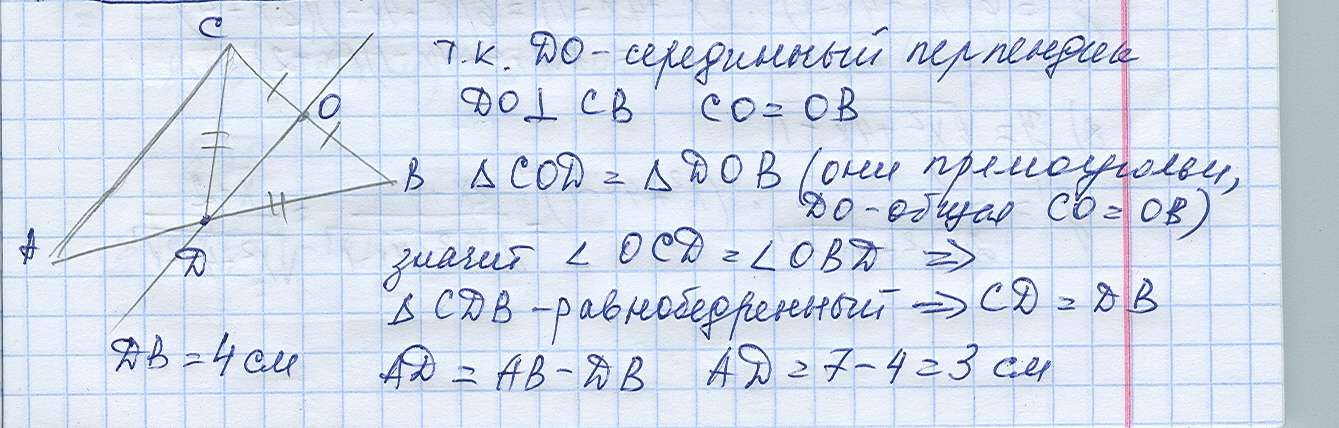 C
т.к. DO - серединный перпендик
O
DO ⊥ CB CO = OB
B
Δ COD = Δ DOB (они прямоугольн,
DO - общая CO = OB)
A
D
значит ∠ OCD = ∠ OBD ⇒
Δ CDB - равнобедренный ⇒ CD = DB
DB = 4 см AD = AB - DB AD = 7 - 4 = 3 см